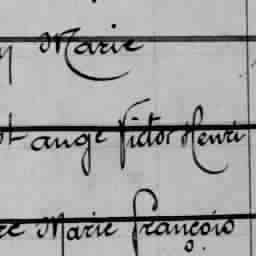 Marie
ange Victor Henri
Marie François